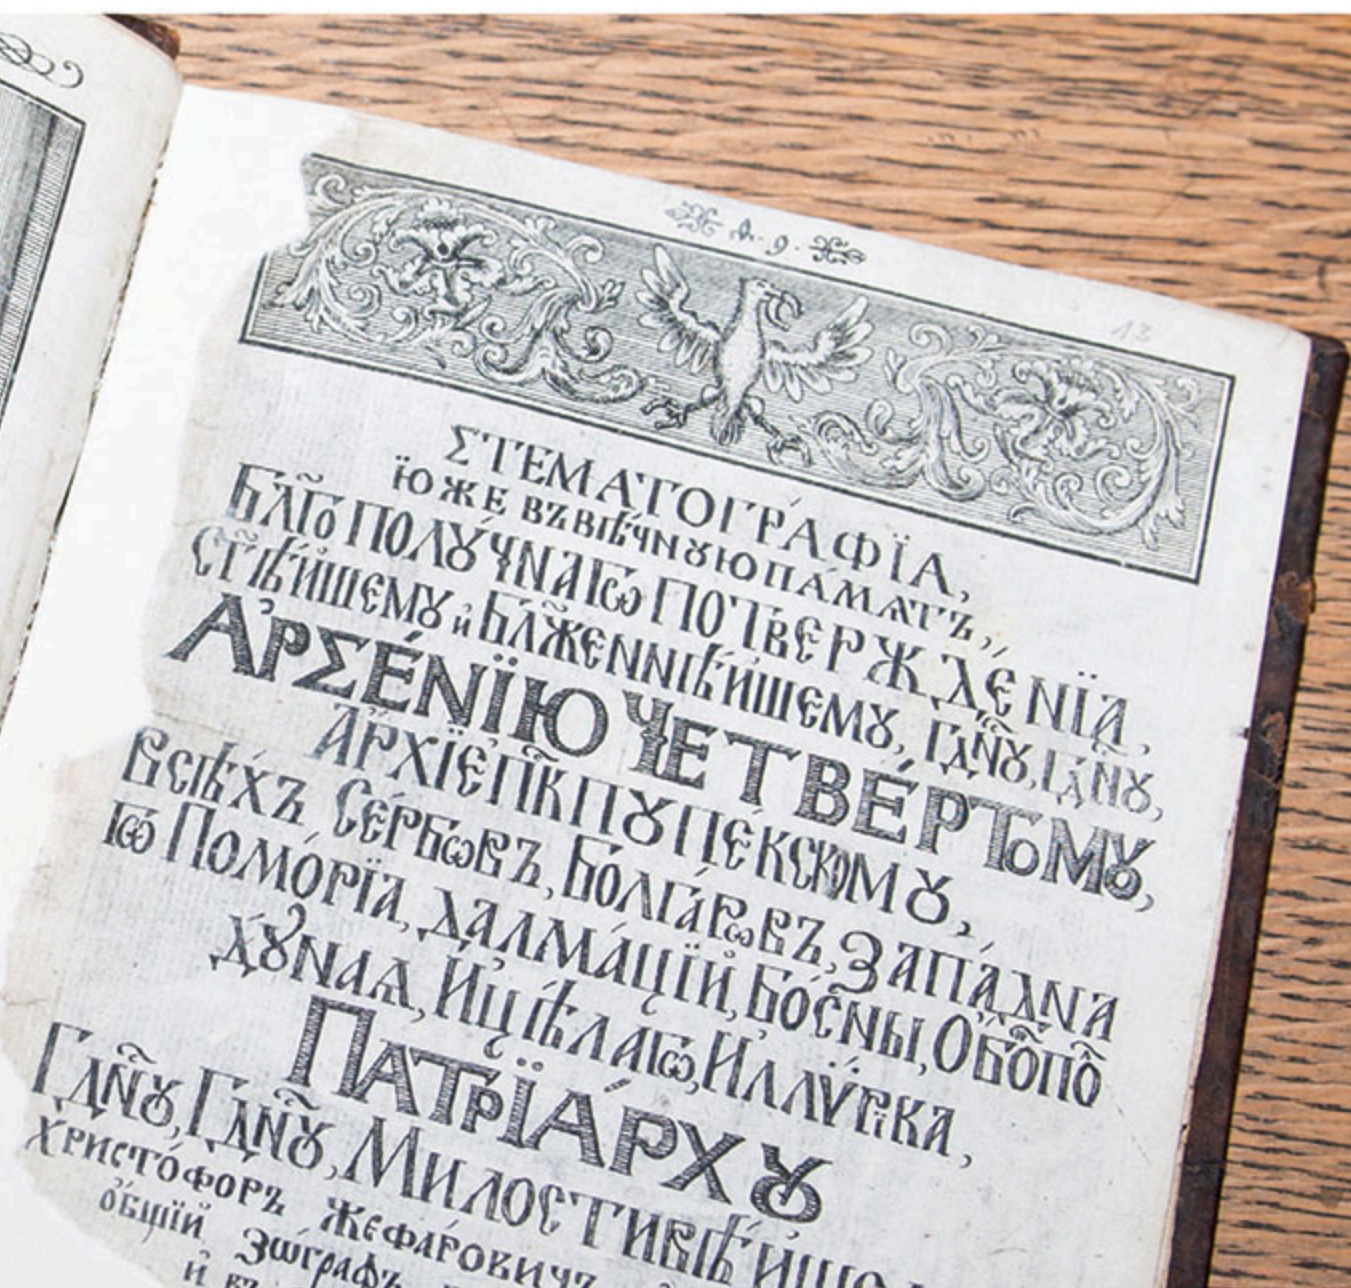 13
СТЕМАТОГРА́ФЇА,
Ю́ЖЕ ВЪ ВѢ́ЧНꙋЮ ПА́МАТЬ,
БЛ҃ГОПОЛꙋ́ЧНАГѠ ПОТВЕРЖДЕ́НЇА,
СТ҃ѢЙШЕМꙋ И҆ БЛ҃ЖЕННѢЙШЕМꙋ, ГДⷭ҇Нꙋ, ГДⷭ҇Нꙋ,
АРСЕ́НЇЮ ЧЕТВЕ́РТОМꙋ,
АРХЇЕП҃КПꙋ ПЕ́КСКОМꙋ,
ВСѢ́ХЪ СЕ́РБѠВЪ, БОЛГА́РѠВЪ, ЗАПА́ДНА
ГѠ ПОМО́РЇА, ДАЛМА́ЦЇИ, БО́СНЫ, ОБОПО
ДꙋНАѦ, И ЦѢЛАГѠ, ИЛЛѴ́РІКА,
ПАТРЇА́РХꙋ
ГДⷭ҇Нꙋ, ГДⷭ҇Нꙋ, МИЛОСТИВѢЙШ
ХРИСТО́ФОРЪ ЖЕФА́РОВИЧЪ
О́БЩЇЙ ЗѠГРАФЪ
И ВЪ